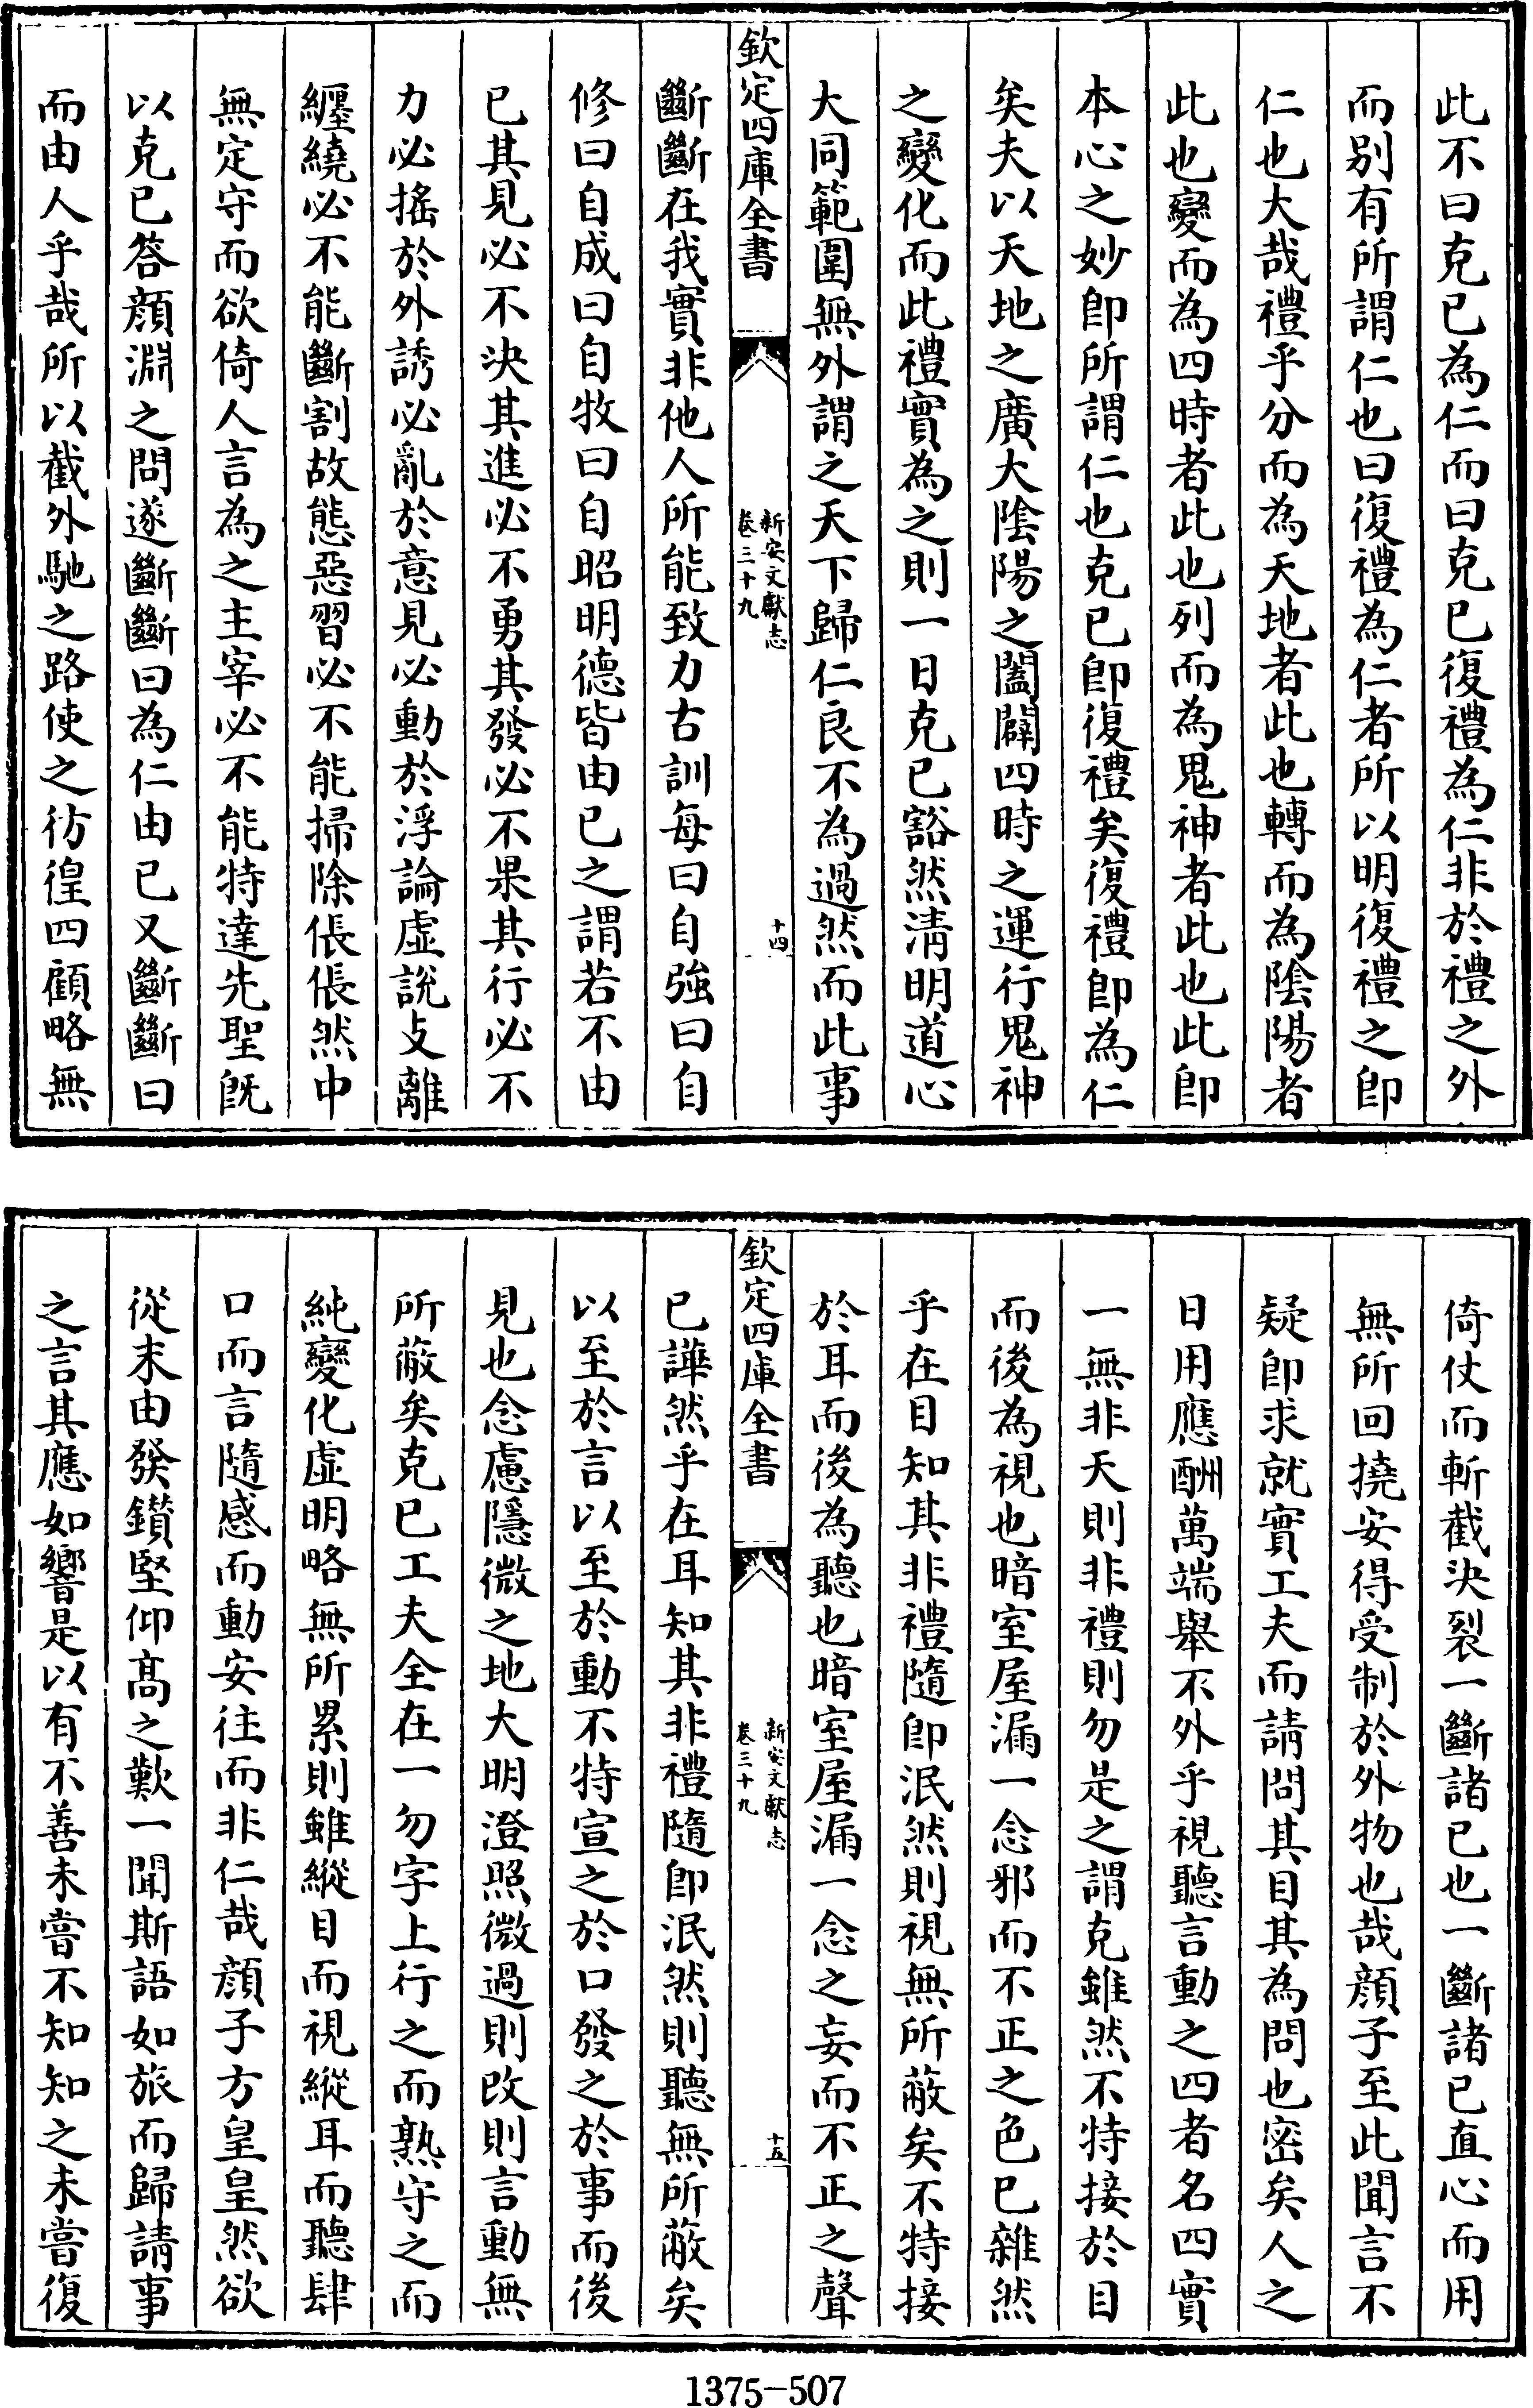 此不曰克已為仁而曰克已復禮為仁非於禮之外
而別有所謂仁也曰復禮為仁者所以明復禮之即
仁也大哉禮乎分而為天地者此也轉而為陰陽者
此也變而為四時者此也列而為鬼神者此也此即
本心之妙即所謂仁也克已即復禮矣復禮即為仁
矣夫以天地之廣大陰陽之闔闢四時之運行鬼神
之變化而此禮實為之則一日克已豁然清明道心
大同範圍無外謂之天下歸仁良不為過然而此事
欽定四庫全書
新安文獻志
卷三十九
十四
斷斷在我實非他人所能致力古訓每曰自強曰自
修曰自成曰自牧曰自昭明德皆由已之謂若不由
已其見必不决其進必不勇其發必不果其行必不
力必搖於外誘必亂於意見必動於浮論虛說攴離
纒繞必不能斷割故態惡習必不能掃除倀倀然中
無定守而欲倚人言為之主宰必不能特達先聖既
以克已答顔淵之問遂斷斷曰為仁由已又斷斷曰
而由人乎哉所以截外馳之路使之彷徨四顧略無
倚仗而斬截决裂一斷諸已也一斷諸已直心而用
無所回撓安得受制於外物也哉顔子至此聞言不
疑即求就實工夫而請問其目其為問也密矣人之
日用應酬萬端舉不外乎視聽言動之四者名四實
一無非天則非禮則勿是之謂克雖然不特接於目
而後為視也暗室屋漏一念邪而不正之色已雜然
乎在目知其非禮隨即泯然則視無所蔽矣不特接
於耳而後為聽也暗室屋漏一念之妄而不正之聲
欽定四庫全書
新安文獻志
卷三十九
十五
已譁然乎在耳知其非禮隨即泯然則聽無所蔽矣
以至於言以至於動不特宣之於口發之於事而後
見也念慮隱微之地大明澄照微過則改則言動無
所蔽矣克已工夫全在一勿字上行之而熟守之而
純變化虛明略無所累則雖縱目而視縱耳而聽肆
口而言隨感而動安往而非仁哉顔子方皇皇然欲
從末由發鑚堅仰髙之歎一聞斯語如旅而歸請事
之言其應如響是以有不善未嘗不知知之未嘗復
1375-507